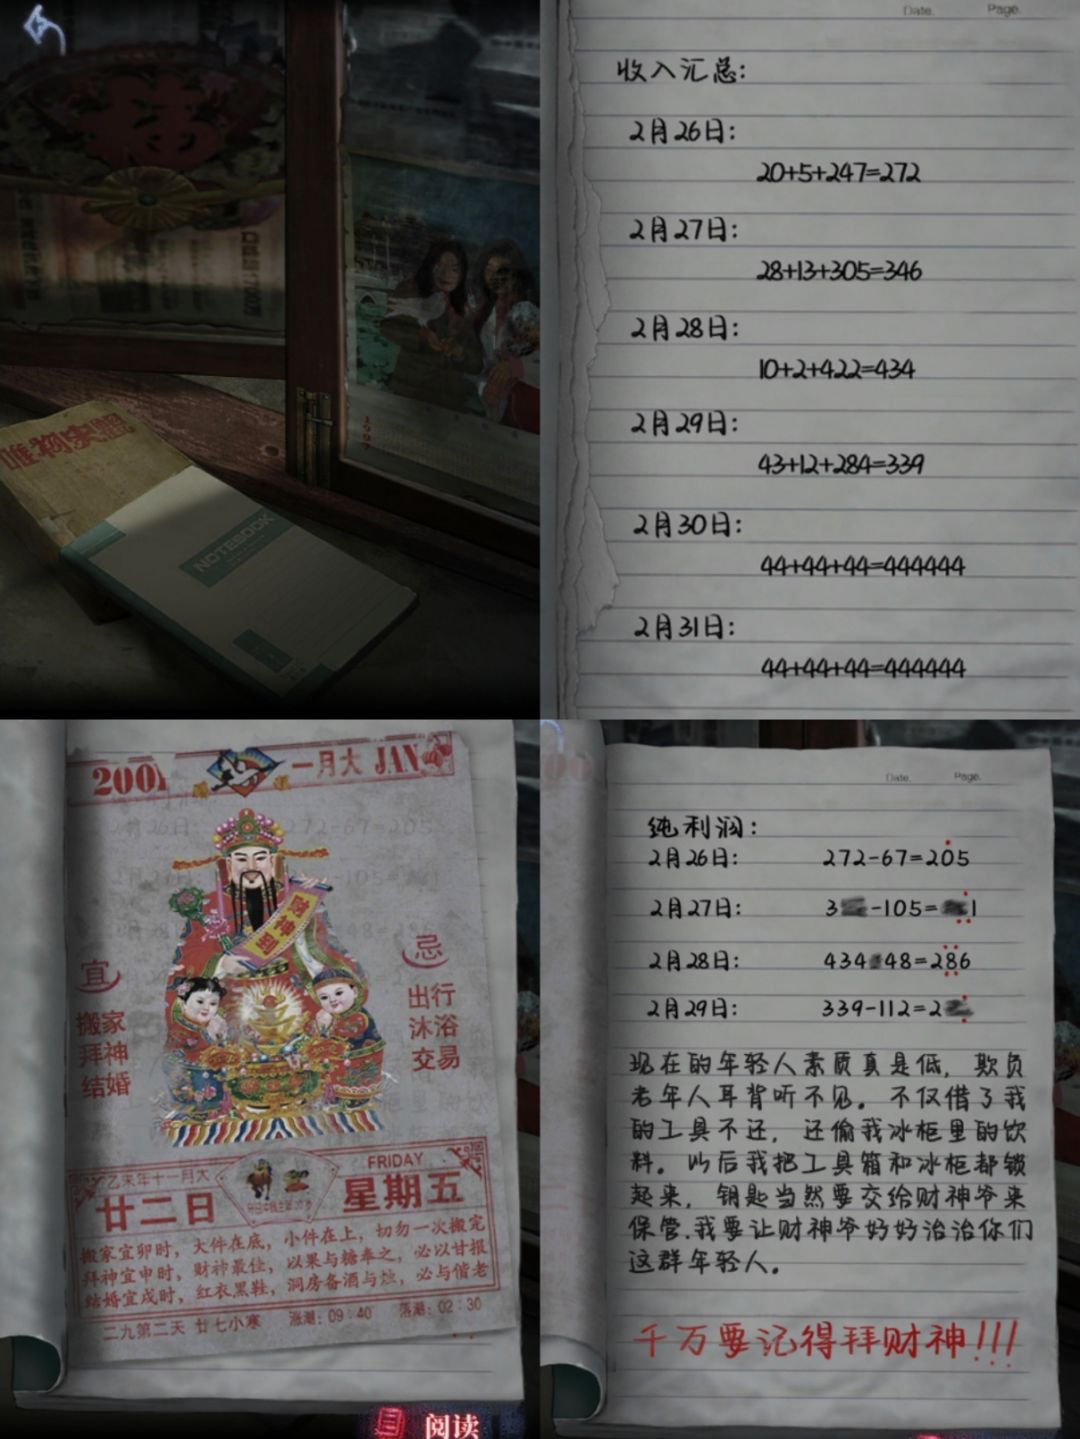 福
唯物史观
NOTEBOOK
1997
Date. Page.
收入汇总:
2月26日:
20+5+247=272
2月27日:
28+13+305=346
2月28日:
10+2+422=434
2月29日:
43+12+284=339
2月30日:
44+44+44=444444
2月31日:
44+44+44=444444
2001 一月大 JAN
财神到
宜
搬家
拜神
结婚
忌
出行
沐浴
交易
FRIDAY
廿二日 星期五
搬家宜卯时，大件在底，小件在上，切勿一次搬完
拜神宜申时，财神最佳，以果与糖奉之，必以甘报
结婚宜戌时，红衣黑鞋，洞房备酒与烛，必与偕老
二九第二天 廿七小寒 涨潮:09:40 落潮:02:30
阅读
Date. Page.
纯利润:
2月26日: 272-67=205
2月27日: 3 -105= 1
2月28日: 434 48=286
2月29日: 339-112=2
现在的年轻人素质真是低，欺负
老年人耳背听不见。不仅借了我
的工具不还，还偷我冰柜里的饮
料。以后我把工具箱和冰柜都锁
起来，钥匙当然要交给财神爷来
保管.我要让财神爷好好治治你们
这群年轻人。
千万要记得拜财神!!!